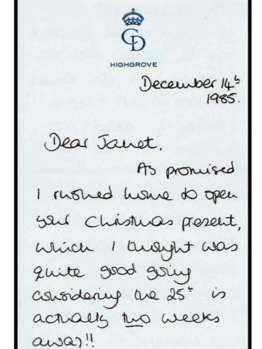 CD
HIGHGROVE
December 14th
1985.
Dear Janet,
As promised
I rushed home to open
your Christmas present,
which I thought was
quite good going
considering the 25th is
actually two weeks
away!!